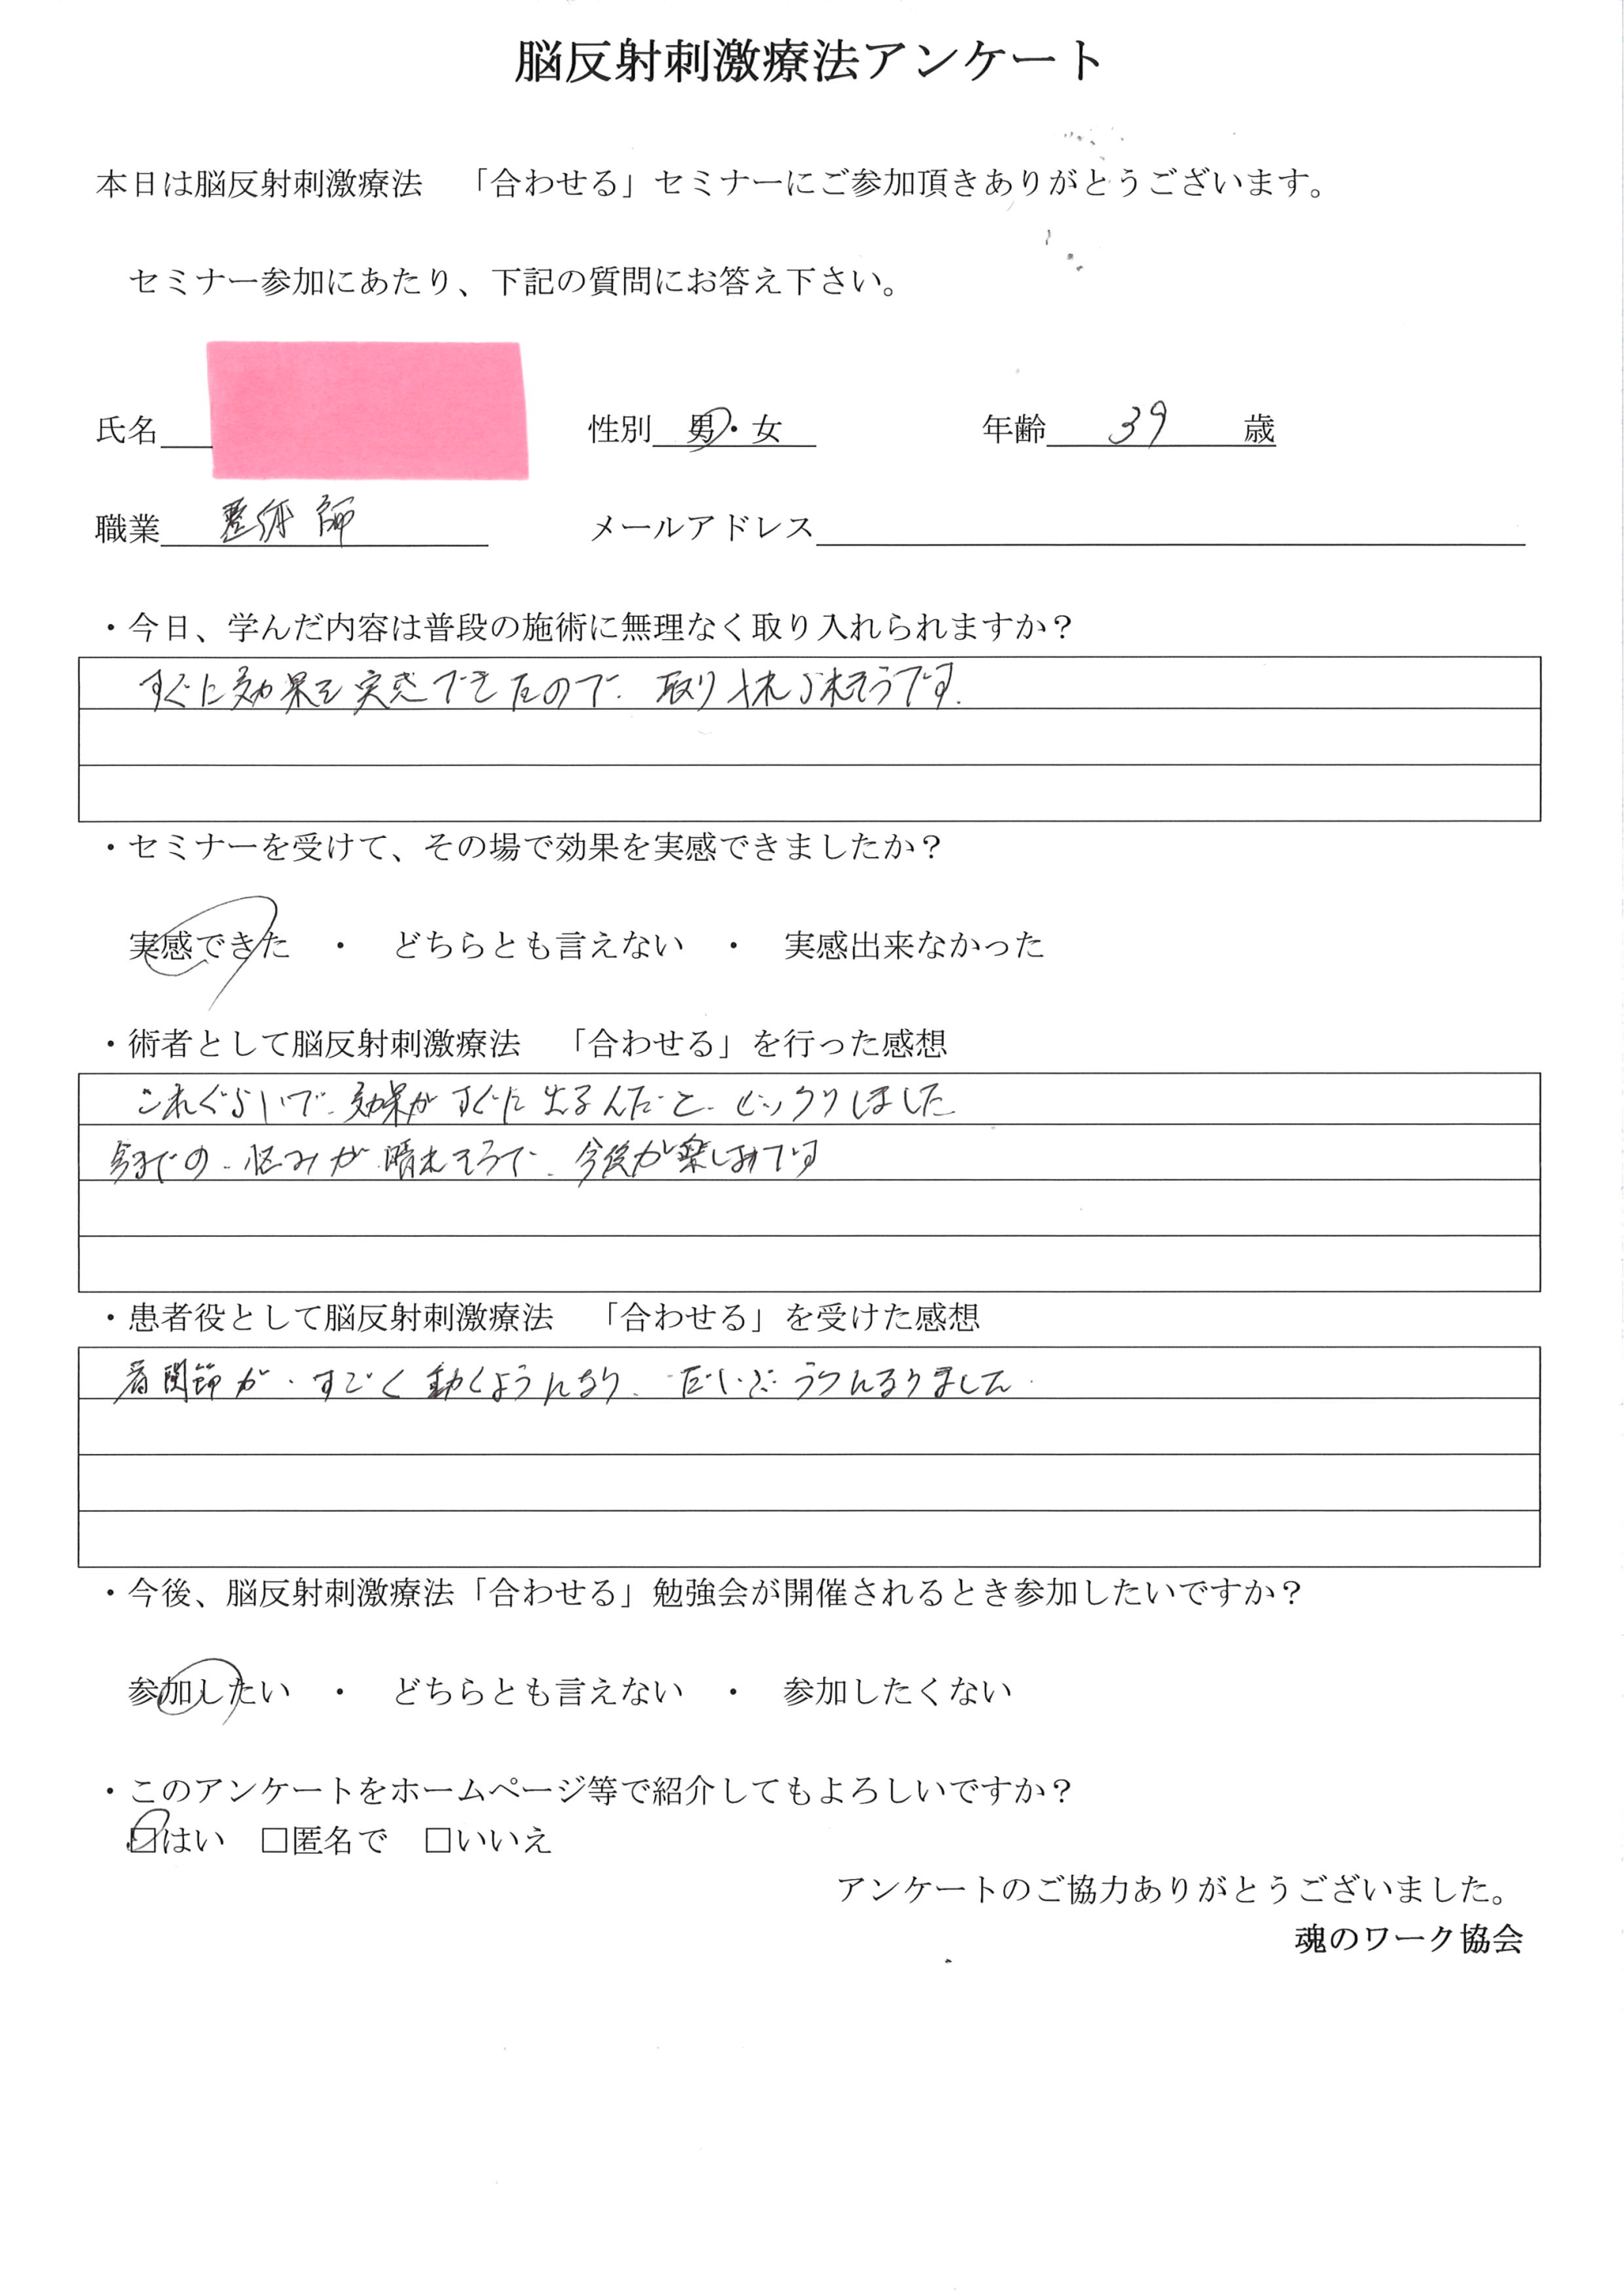 脳反射刺激療法アンケート
本日は脳反射刺激療法　「合わせる」セミナーにご参加頂きありがとうございます。
セミナー参加にあたり、下記の質問にお答え下さい。
氏名　性別　男・女　年齢　39　歳
職業　整体師　メールアドレス
・今日、学んだ内容は普段の施術に無理なく取り入れられますか？
すぐに効果を実感できたので、取り入れられそうです。
・セミナーを受けて、その場で効果を実感できましたか？
実感できた　・　どちらとも言えない　・　実感出来なかった
・術者として脳反射刺激療法　「合わせる」を行った感想
これぐらいで、効果がすぐに出るんだと、ビックリしました
今までの、悩みが晴れそうで、今後が楽しみです
・患者役として脳反射刺激療法　「合わせる」を受けた感想
肩関節が、すごく動くようになり、だいぶらくになりました
・今後、脳反射刺激療法「合わせる」勉強会が開催されるとき参加したいですか？
参加したい　・　どちらとも言えない　・　参加したくない
・このアンケートをホームページ等で紹介してもよろしいですか？
□はい　□匿名で　□いいえ
アンケートのご協力ありがとうございました。
魂のワーク協会